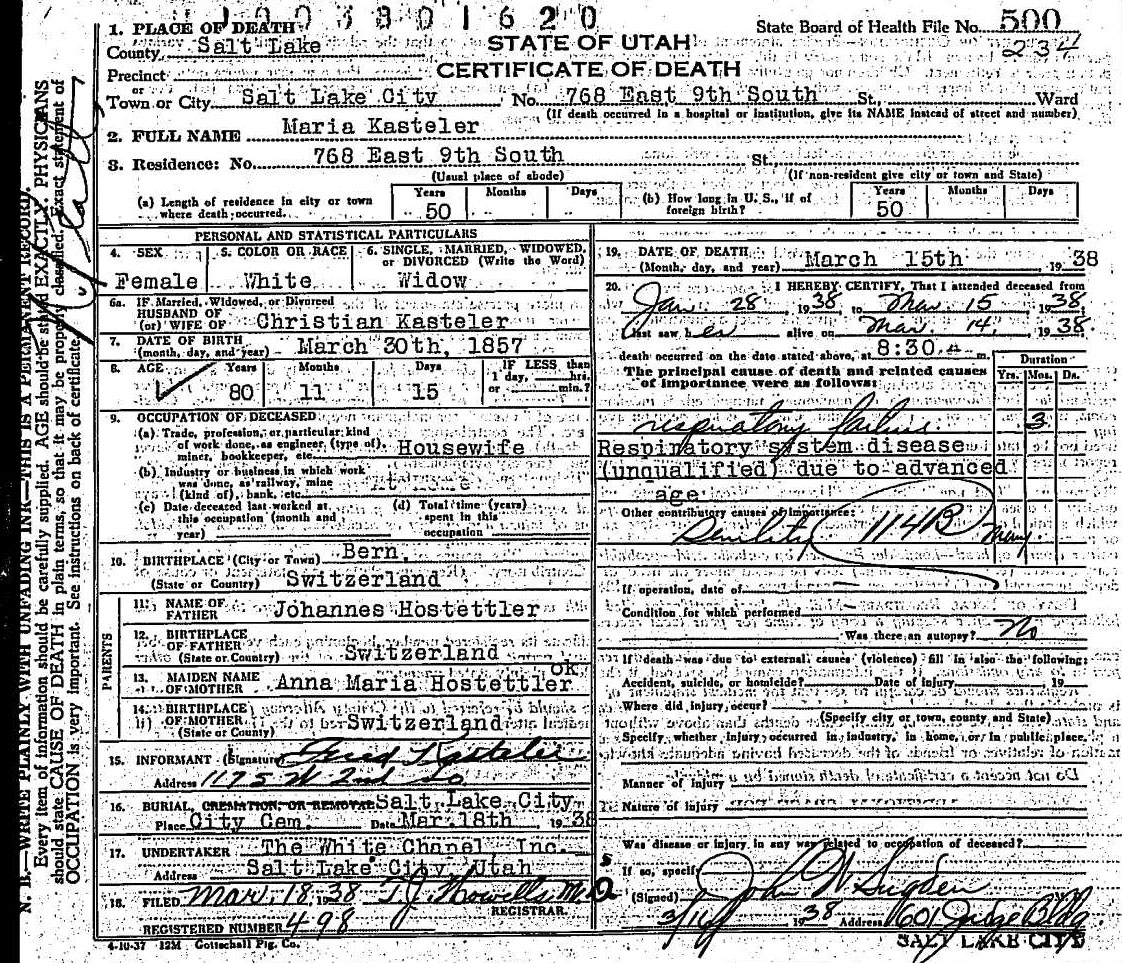 1003801620
1. PLACE OF DEATH
State Board of Health File No. 500
County Salt Lake
STATE OF UTAH
234
Precinct
CERTIFICATE OF DEATH
or
Town or City Salt Lake City No. 768 East 9th South St., Ward
(If death occurred in a hospital or institution, give its NAME instead of street and number)
2. FULL NAME Maria Kasteler
3. Residence: No. 768 East 9th South St.
(Usual place of abode) (If non-resident give city or town and State)
(a) Length of residence in city or town where death occurred. Years 50 Months Days
(b) How long in U. S., if of foreign birth? Years 50 Months Days
PERSONAL AND STATISTICAL PARTICULARS
4. SEX Female
5. COLOR OR RACE White
6. SINGLE, MARRIED, WIDOWED, or DIVORCED (Write the Word) Widow
6a. IF Married, Widowed, or Divorced
HUSBAND OF
(or) WIFE OF Christian Kasteler
7. DATE OF BIRTH
(month, day, and year) March 30th, 1857
8. AGE Years 80 Months 11 Days 15 IF LESS than 1 day, hrs. or min.?
9. OCCUPATION OF DECEASED
(a) Trade, profession, or particular kind
of work done, as engineer, (type of),
miner, bookkeeper, etc. Housewife
(b) Industry or business in which work
was done, as railway, mine
(kind of), bank, etc. At Home
(c) Date deceased last worked at
this occupation (month and
year)
(d) Total time (years)
spent in this
occupation
10. BIRTHPLACE (City or Town) Bern,
(State or Country) Switzerland
PARENTS
11. NAME OF FATHER Johannes Hostettler
12. BIRTHPLACE OF FATHER
(State or Country) Switzerland
OK
13. MAIDEN NAME OF MOTHER Anna Maria Hostettler
14. BIRTHPLACE OF MOTHER
(State or Country) Switzerland
15. INFORMANT (Signature) Fred Kasteler
Address 1175 W 2nd So
16. BURIAL, CREMATION, OR REMOVAL Salt Lake City
Place City Cem. Date Mar. 18th 1938
17. UNDERTAKER The White Chapel Inc.
Address Salt Lake City, Utah
18. FILED Mar. 18 1938 T.J. Howells M.D.
REGISTRAR.
REGISTERED NUMBER 498
4-10-37 12M Gottschall Ptg. Co.
19. DATE OF DEATH
(Month, day, and year) March 15th 1938
20. I HEREBY CERTIFY, That I attended deceased from
Jan. 28 1938 to Mar. 15 1938
I last saw her alive on Mar. 14, 1938.
death occurred on the date stated above, at 8:30 a m.
The principal cause of death and related causes
of importance were as follows:
Duration
Yrs. Mos. Ds.
respiratory failure 3
Respiratory system disease
(unqualified) due to advanced
age
Other contributory causes of importance:
Senility 114B many
If operation, date of
Condition for which performed
Was there an autopsy? No
If death was due to external causes (violence) fill in also the following:
Accident, suicide, or homicide? Date of injury 19
Where did injury occur?
(Specify city or town, county and State)
Specify whether injury occurred in industry, in home, or in public place.
Manner of injury
Nature of injury
Was disease or injury in any way related to occupation of deceased?
If so, specify
(Signed) John W Sugden M.D.
3/16 1938 Address 601 Judge Bldg
SALT LAKE CITY
N. B.—WRITE PLAINLY WITH UNFADING INK—THIS IS A PERMANENT RECORD.
Every item of information should be carefully supplied. AGE should be stated EXACTLY. PHYSICIANS
should state CAUSE OF DEATH in plain terms, so that it may be properly classified. Exact statement of
OCCUPATION is very important. See instructions on back of certificate.